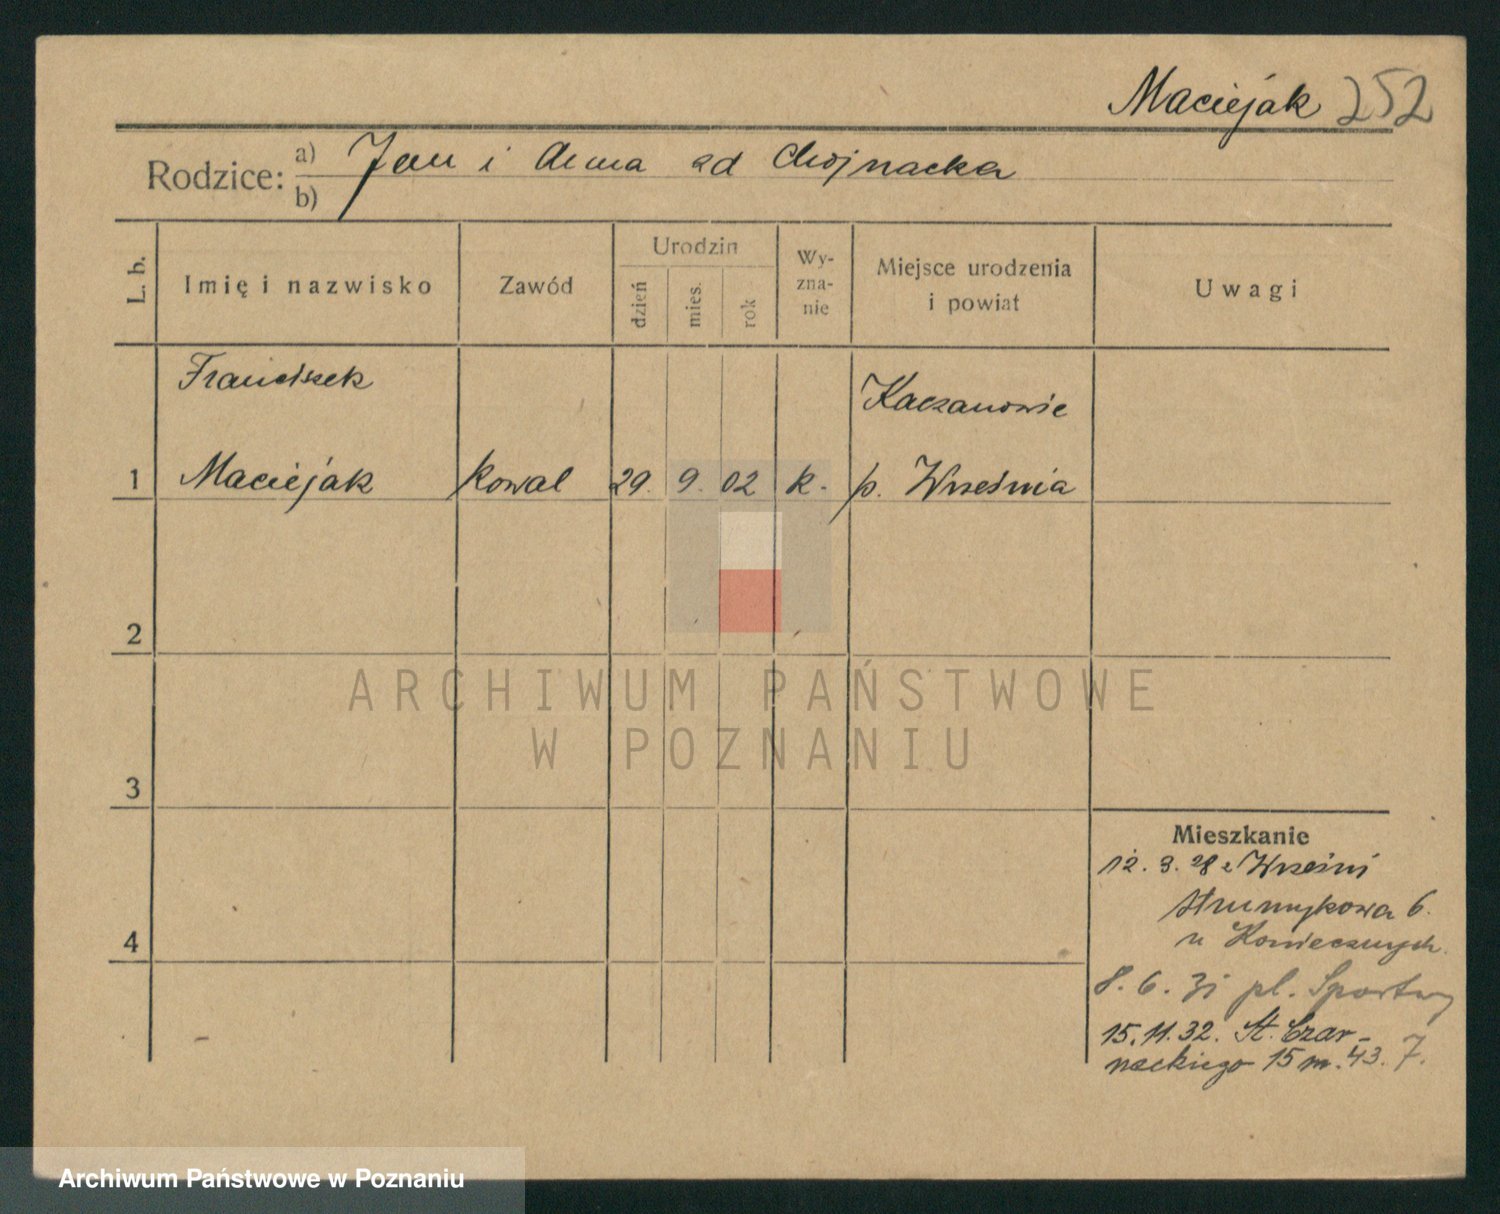 Maciejak 252
Rodzice: a) Jan i Anna zd Chojnacka
b)
L. b.
Imię i nazwisko
Zawód
Urodzin
dzień
mies.
rok
Wy-
zna-
nie
Miejsce urodzenia
i powiat
Uwagi
Franciszek
Kaczanowie
1 Maciejak kowal 29. 9. 02 k. p. Września
2
ARCHIWUM PAŃSTWOWE
W POZNANIU
3
Mieszkanie
12. 3. 28 z Wrześni
Strumykowa 6.
u Koniecznych.
4
8. 6. 31 pl. Sportowy
15.11.32. St. Czar-
neckiego 15 m. 43. 7.
Archiwum Państwowe w Poznaniu